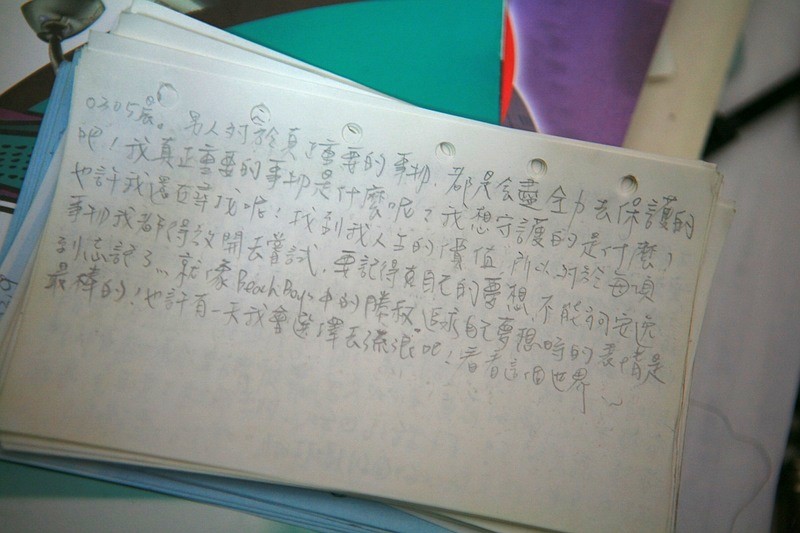 0305晨。男人對於真正重要的事物，都是會盡全力去保護的
吧！我真正重要的事物是什麼呢？我想守護的是什麼？
也許我還在尋找呢！找到我人生的價值，所以對於每項
事物我都得放開去嘗試，要記得自己的夢想，不能
到忘記了…就像Beach Boys中的勝叔，追求自己夢想時的表情是
最棒的！也許有一天我會選擇去流浪吧！看看這個世界～